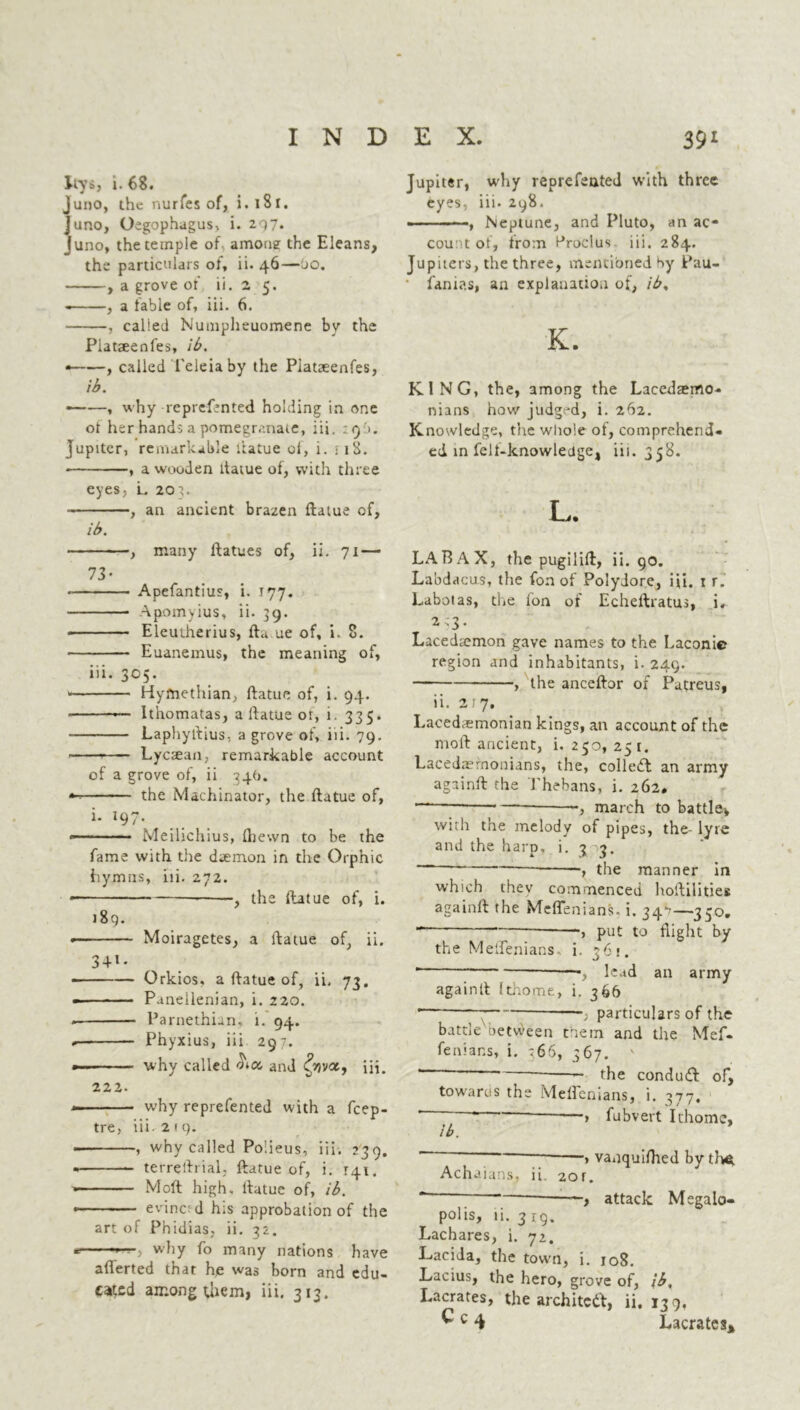 INDEX. 391
Itys, i. 68.
Juno, the nurſes of, i. 181.
Juno, Oegophagus, i. 297.
Juno, the temple of, among the Eleans,
the particulars of, ii. 46—60.
——, a grove of ii. 2 5.
——, a fable of, iii. 6.
——, called Numpheuomene by the
Platæenſes, ib.
——, called Teleia by the Platæenſes,
ib.
——, why repreſented holding in one
of her hands a pomegranate, iii.
Jupiter, remarkable ſtatue of, i. 118.
———, a wooden ſtatue of, with three
eyes, i. 203.
———, an ancient brazen ſtatue of,
ib.
———, many ſtatues of, ii. 71—
73.
——— Apeſantius, i. 177.
——— Apomyius, ii. 39.
——— Eleutherius, ſtatue of, i. 8.
——— Euanemus, the meaning of,
iii. 305.
——— Hymethian, ſtatue of, i. 94.
——— Ithomatas, a ſtatue of, i. 335.
——— Laphyſtius, a grove of, iii. 79.
——— Lycæan, remarkable account
of a grove of, ii 346.
——— the Machinator, the ſtatue of,
i. 197.
——— Meilichius, ſhewn to be the
ſame with the dæmon in the Orphic
hymns, iii. 272.
——————, the ſtatue of, i.
189.
——— Moiragetes, a ſtatue of, ii.
341.
——— Orkios, a ſtatue of, ii. 73.
——— Panellenian, i. 220.
——— Parnethian, i. 94.
——— Phyxius, iii 297.
——— why called δια and ζηνα, iii.
222.
——— why repreſented with a ſcep-
tre, iii. 219.
———, why called Polieus, iii. 239.
——— terreſtrial, ſtatue of, i. 141.
——— Moſt high, ſtatue of, ib.
——— evinced his approbation of the
art of Phidias, ii. 32.
———, why ſo many nations have
aſſerted that he was born and edu-
cated among them, iii. 313.
Jupiter, why repreſented with three
eyes, iii. 298.
———, Neptune, and Pluto, an ac-
count of, from Proclus. iii. 284.
Jupiters, the three, mentioned by Pau-
ſanias, an explanation of, ib.
K.
KING, the, among the Lacedæmo-
nians how judged, i. 262.
Knowledge, the whole of, comprehend-
ed in ſelf-knowledge, iii. 358.
L.
LABAX, the pugiliſt, ii. 90.
Labdacus, the ſon of Polydore, iii. 11.
Labotas, the ſon of Echeſtratus, i.
Lacedæmon gave names to the Laconic
region and inhabitants, i. 249.
——————, the anceſtor of Patreus,
ii. 217.
Lacedæmonian kings, an account of the
moſt ancient, i. 250, 251.
Lacedæmonians, the, collect an army
againſt the Thebans, i. 262.
——————, march to battle,
with the melody of pipes, the lyre
and the harp, i.
——————, the manner in
which they commenced hoſtilities
againſt the Meſſenians, i. 347—350.
——————, put to flight by
the Meſſenians, i. 361.
——————, lead an army
againſt Ithome, i. 366
——————, particulars of the
battle between them and the Meſ-
ſenians, i. 366, 367.
—————— the conduct of,
towards the Meſſenians, i. 377.
——————, ſubvert Ithome,
ib.
——————, vanquiſhed by the
Achaians, ii. 201.
——————, attack Megalo-
polis, ii. 319.
Lachares, i. 72.
Lacida, the town, i. 108.
Lacius, the hero, grove of, ib.
Lacrates, the architect, ii. 139.
C c 4 Lacrates,